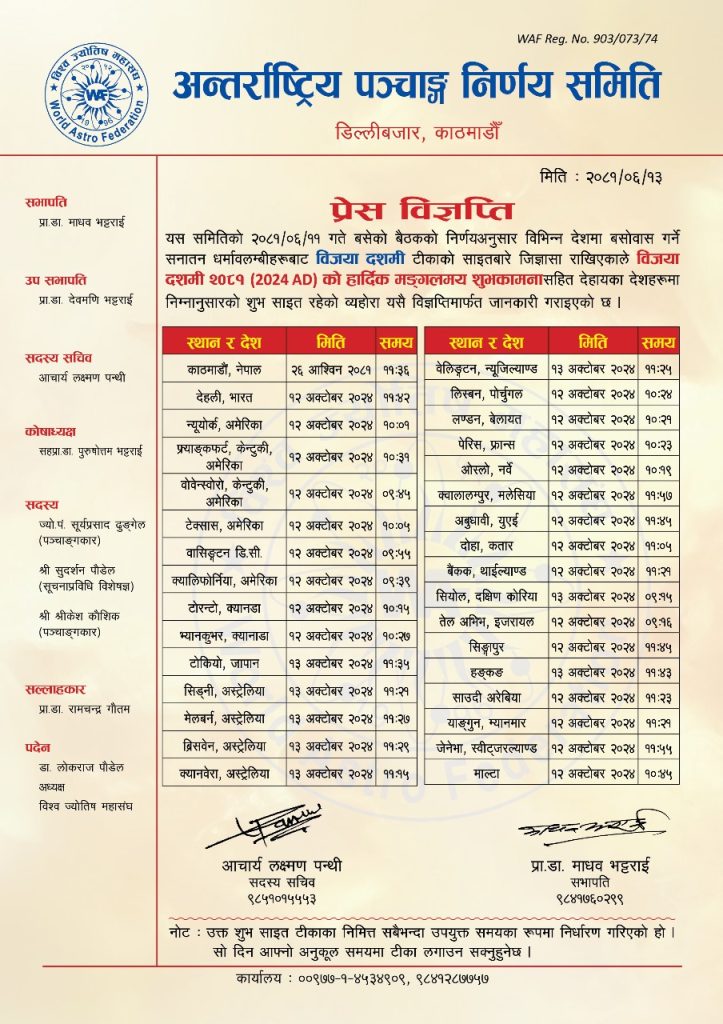 WAF Reg. No. 903/073/74
विश्व ज्योतिष महासंघ
WAF
World Astro Federation
अन्तर्राष्ट्रिय पञ्चाङ्ग निर्णय समिति
डिल्लीबजार, काठमाडौँ
मिति : २०८१/०६/१३
सभापति
प्रा.डा. माधव भट्टराई
उप सभापति
प्रा.डा. देवमणि भट्टराई
सदस्य सचिव
आचार्य लक्ष्मण पन्थी
कोषाध्यक्ष
सहप्रा.डा. पुरुषोत्तम भट्टराई
सदस्य
ज्यो.पं. सूर्यप्रसाद ढुङ्गेल
(पञ्चाङ्गकार)
श्री सुदर्शन पौडेल
(सूचनाप्रविधि विशेषज्ञ)
श्री श्रीकेश कौशिक
(पञ्चाङ्गकार)
सल्लाहकार
प्रा.डा. रामचन्द्र गौतम
पदेन
डा. लोकराज पौडेल
अध्यक्ष
विश्व ज्योतिष महासंघ
प्रेस विज्ञप्ति
यस समितिको २०८१/०६/११ गते बसेको बैठकको निर्णयअनुसार विभिन्न देशमा बसोवास गर्ने
सनातन धर्मावलम्बीहरूबाट विजया दशमी टीकाको साइतबारे जिज्ञासा राखिएकाले विजया
दशमी २०८१ (2024 AD) को हार्दिक मङ्गलमय शुभकामनासहित देहायका देशहरूमा
निम्नानुसारको शुभ साइत रहेको व्यहोरा यसै विज्ञप्तिमार्फत जानकारी गराइएको छ ।
स्थान र देश मिति समय
काठमाडौं, नेपाल २६ आश्विन २०८१ ११:३६
देहली, भारत १२ अक्टोबर २०२४ ११:४२
न्यूयोर्क, अमेरिका १२ अक्टोबर २०२४ १०:०१
फ्र्याङ्कफर्ट, केन्टुकी, अमेरिका १२ अक्टोबर २०२४ १०:३१
वोवेन्स्वोरो, केन्टुकी, अमेरिका १२ अक्टोबर २०२४ ०९:४५
टेक्सास, अमेरिका १२ अक्टोबर २०२४ १०:०५
वासिङ्गटन डि.सी. १२ अक्टोबर २०२४ ०९:५५
क्यालिफोर्निया, अमेरिका १२ अक्टोबर २०२४ ०९:३९
टोरन्टो, क्यानडा १२ अक्टोबर २०२४ १०:१५
भ्यानकुभर, क्यानाडा १२ अक्टोबर २०२४ १०:२७
टोकियो, जापान १३ अक्टोबर २०२४ ११:३५
सिड्नी, अस्ट्रेलिया १३ अक्टोबर २०२४ ११:२१
मेलबर्न, अस्ट्रेलिया १३ अक्टोबर २०२४ ११:२७
ब्रिसवेन, अस्ट्रेलिया १३ अक्टोबर २०२४ ११:२९
क्यानवेरा, अस्ट्रेलिया १३ अक्टोबर २०२४ ११:१५
स्थान र देश मिति समय
वेलिङ्गटन, न्यूजिल्याण्ड १३ अक्टोबर २०२४ ११:२५
लिस्बन, पोर्चुगल १२ अक्टोबर २०२४ १०:२४
लण्डन, बेलायत १२ अक्टोबर २०२४ १०:२१
पेरिस, फ्रान्स १२ अक्टोबर २०२४ १०:२३
ओस्लो, नर्वे १२ अक्टोबर २०२४ १०:१९
क्वालालम्पुर, मलेसिया १२ अक्टोबर २०२४ ११:५७
अबुधावी, युएई १२ अक्टोबर २०२४ ११:४५
दोहा, कतार १२ अक्टोबर २०२४ ११:०५
बैकक, थाईल्याण्ड १२ अक्टोबर २०२४ ११:२१
सियोल, दक्षिण कोरिया १३ अक्टोबर २०२४ ०९:१५
तेल अभिभ, इजरायल १२ अक्टोबर २०२४ ०९:१६
सिङ्गापुर १२ अक्टोबर २०२४ ११:४५
हङ्कङ १३ अक्टोबर २०२४ ११:४३
साउदी अरेबिया १२ अक्टोबर २०२४ ११:२३
याङ्गुन, म्यानमार १२ अक्टोबर २०२४ ११:२१
जेनेभा, स्वीट्जरल्याण्ड १२ अक्टोबर २०२४ ११:५५
माल्टा १२ अक्टोबर २०२४ १०:४५
आचार्य लक्ष्मण पन्थी
सदस्य सचिव
९८५१०१५५५३
प्रा.डा. माधव भट्टराई
सभापति
९८४१७६०२९९
नोट : उक्त शुभ साइत टीकाका निमित्त सबैभन्दा उपयुक्त समयका रूपमा निर्धारण गरिएको हो ।
सो दिन आफ्नो अनुकूल समयमा टीका लगाउन सक्नुहुनेछ ।
कार्यालय : ००९७७-१-४५३४९०९, ९८४१२८७७५७